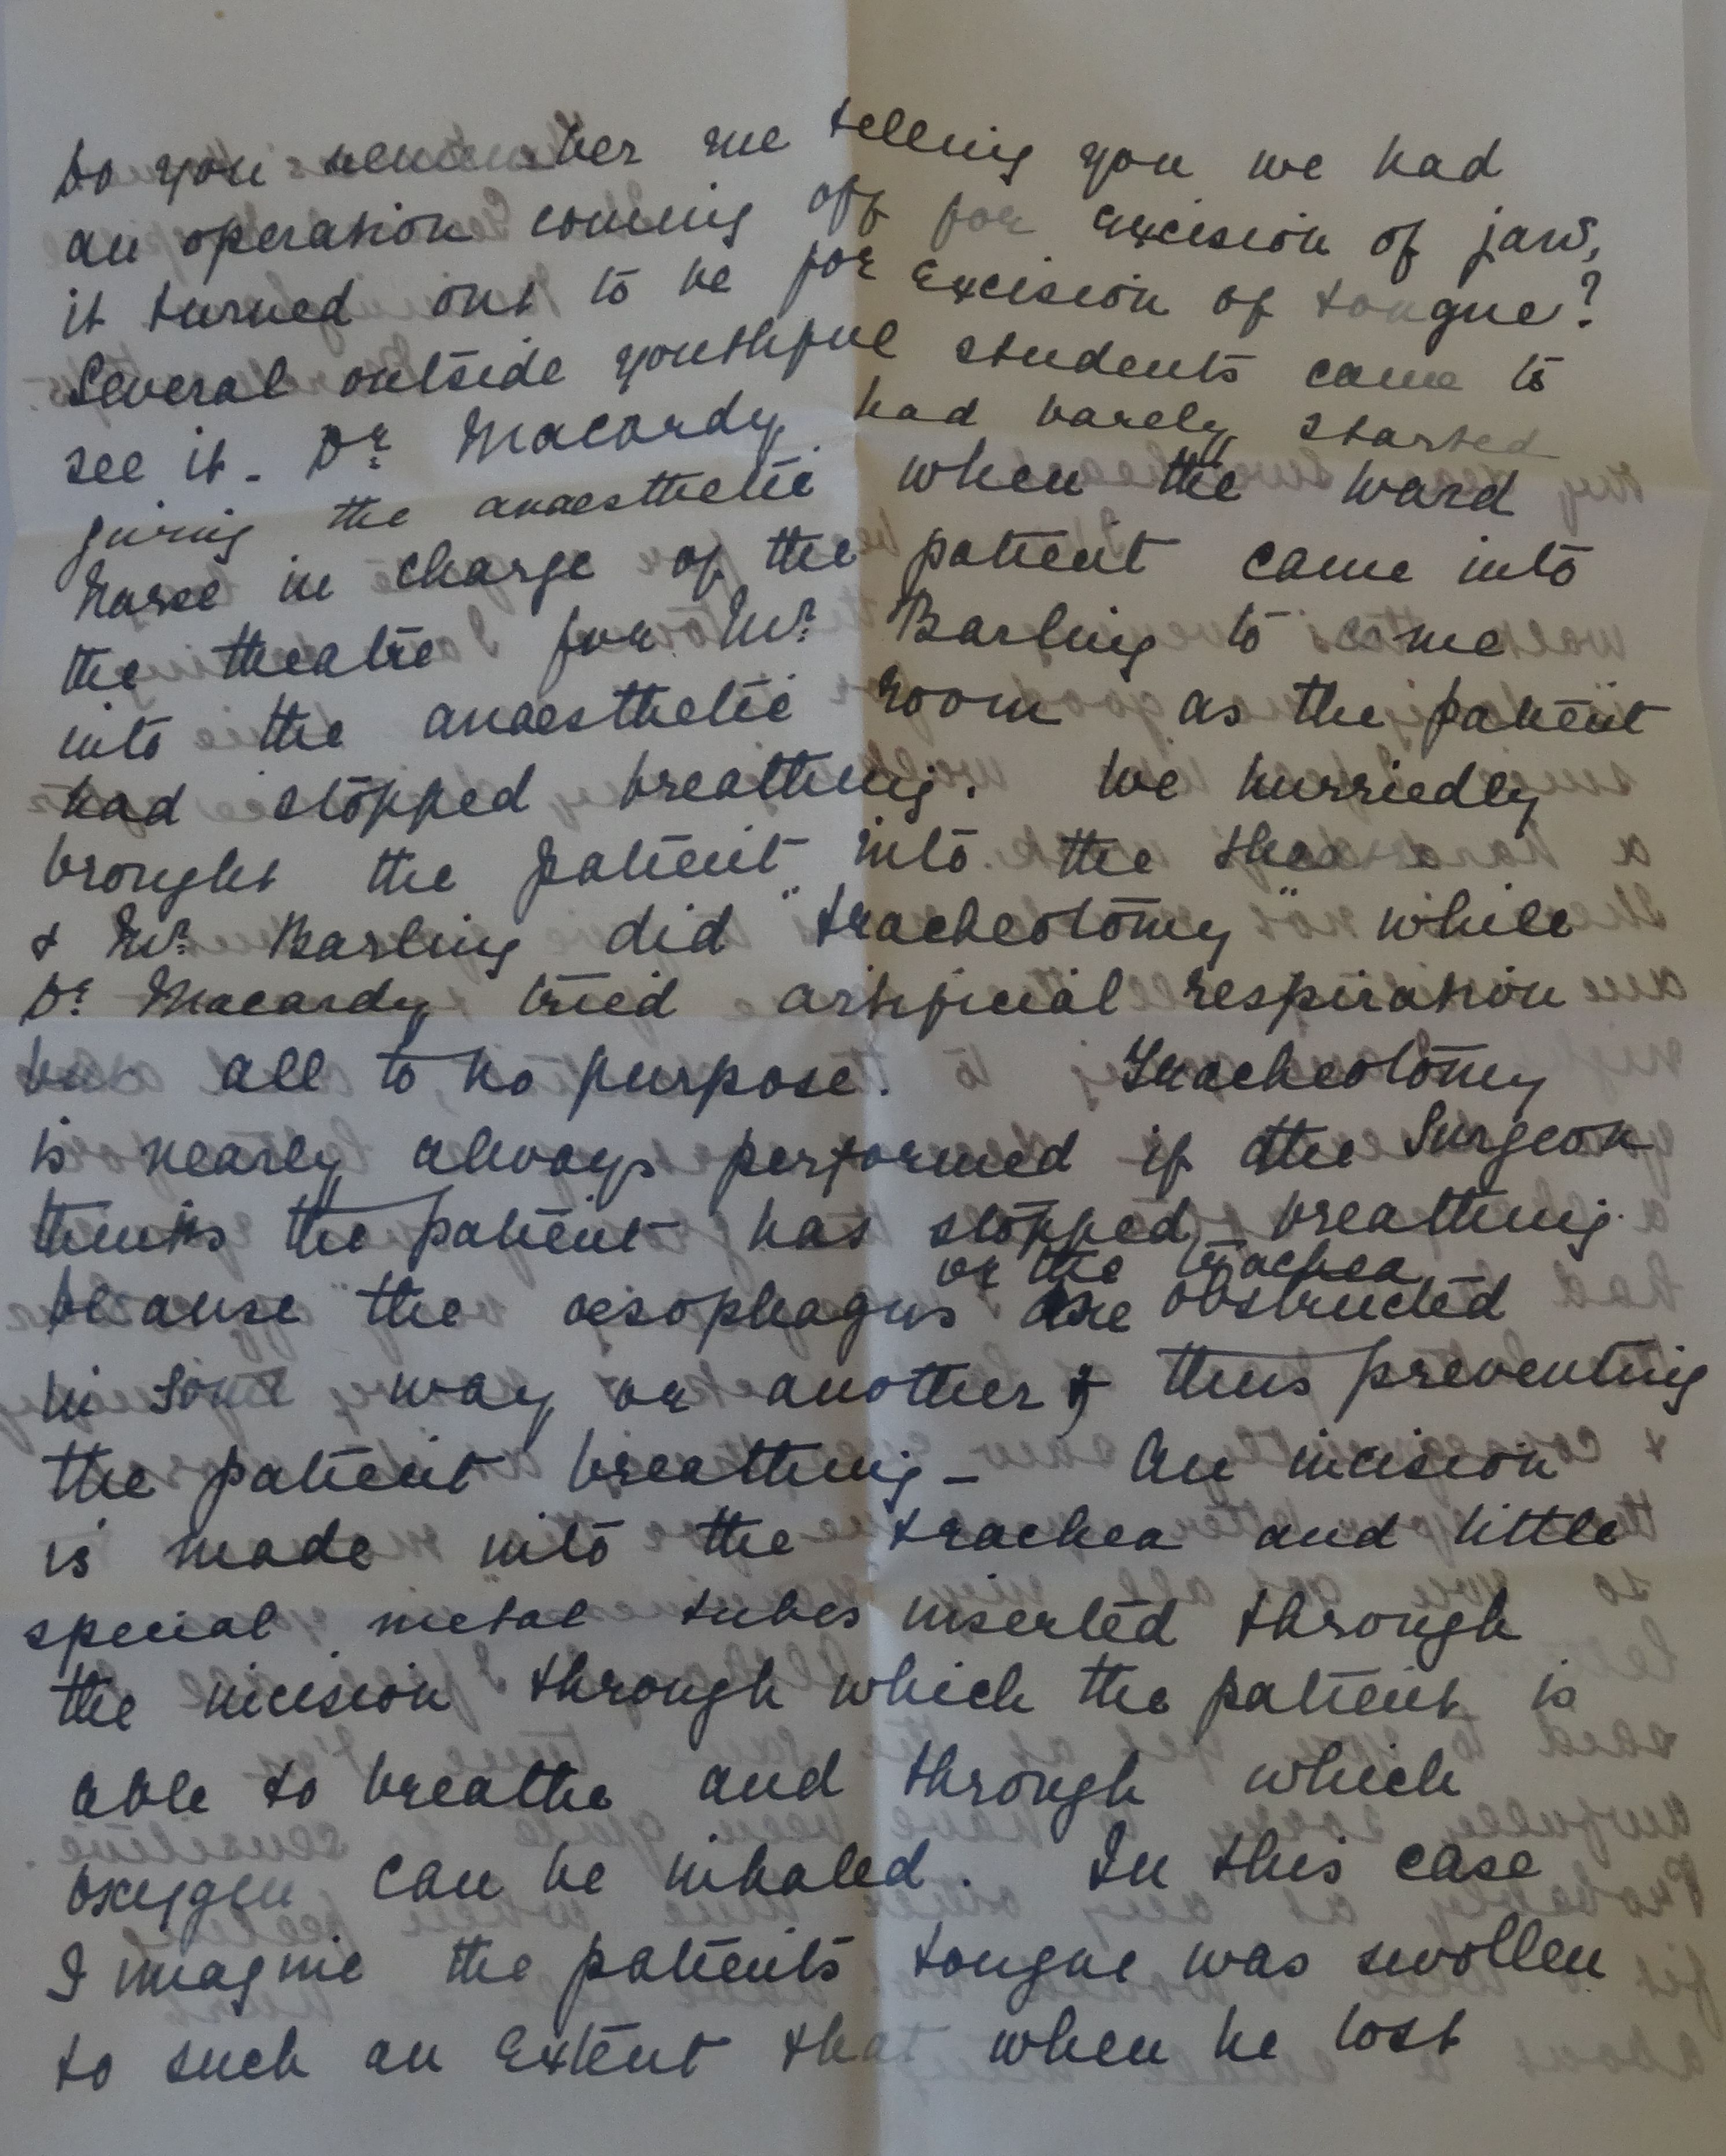 Do you remember me telling you we had
an operation coming off for excision of jaw,
it turned out to be for excision of tongue?
Several outside youthful students came to
see it - Dr Macardy had barely started
giving the anaesthetic when the ward
nurse in charge of the patient came into
the theatre for Mr Barling to come
into the anaesthetic room as the patient
had stopped breathing. We hurriedly
brought the patient into the
& Mr Barling did "tracheotomy" while
Dr Macardy tried artificial respiration
but all to no purpose. Tracheotomy
is nearly always performed if the Surgeon
thinks the patient has stopped breathing
or the trachea
because the oesophagus are obstructed
in some way or another & thus preventing
the patient breathing - An incision
is made into the trachea and little
special metal tubes inserted through
the incision through which the patient is
able to breathe and through which
oxygen can be inhaled. In this case
I imagine the patients tongue was swollen
to such an extent that when he lost